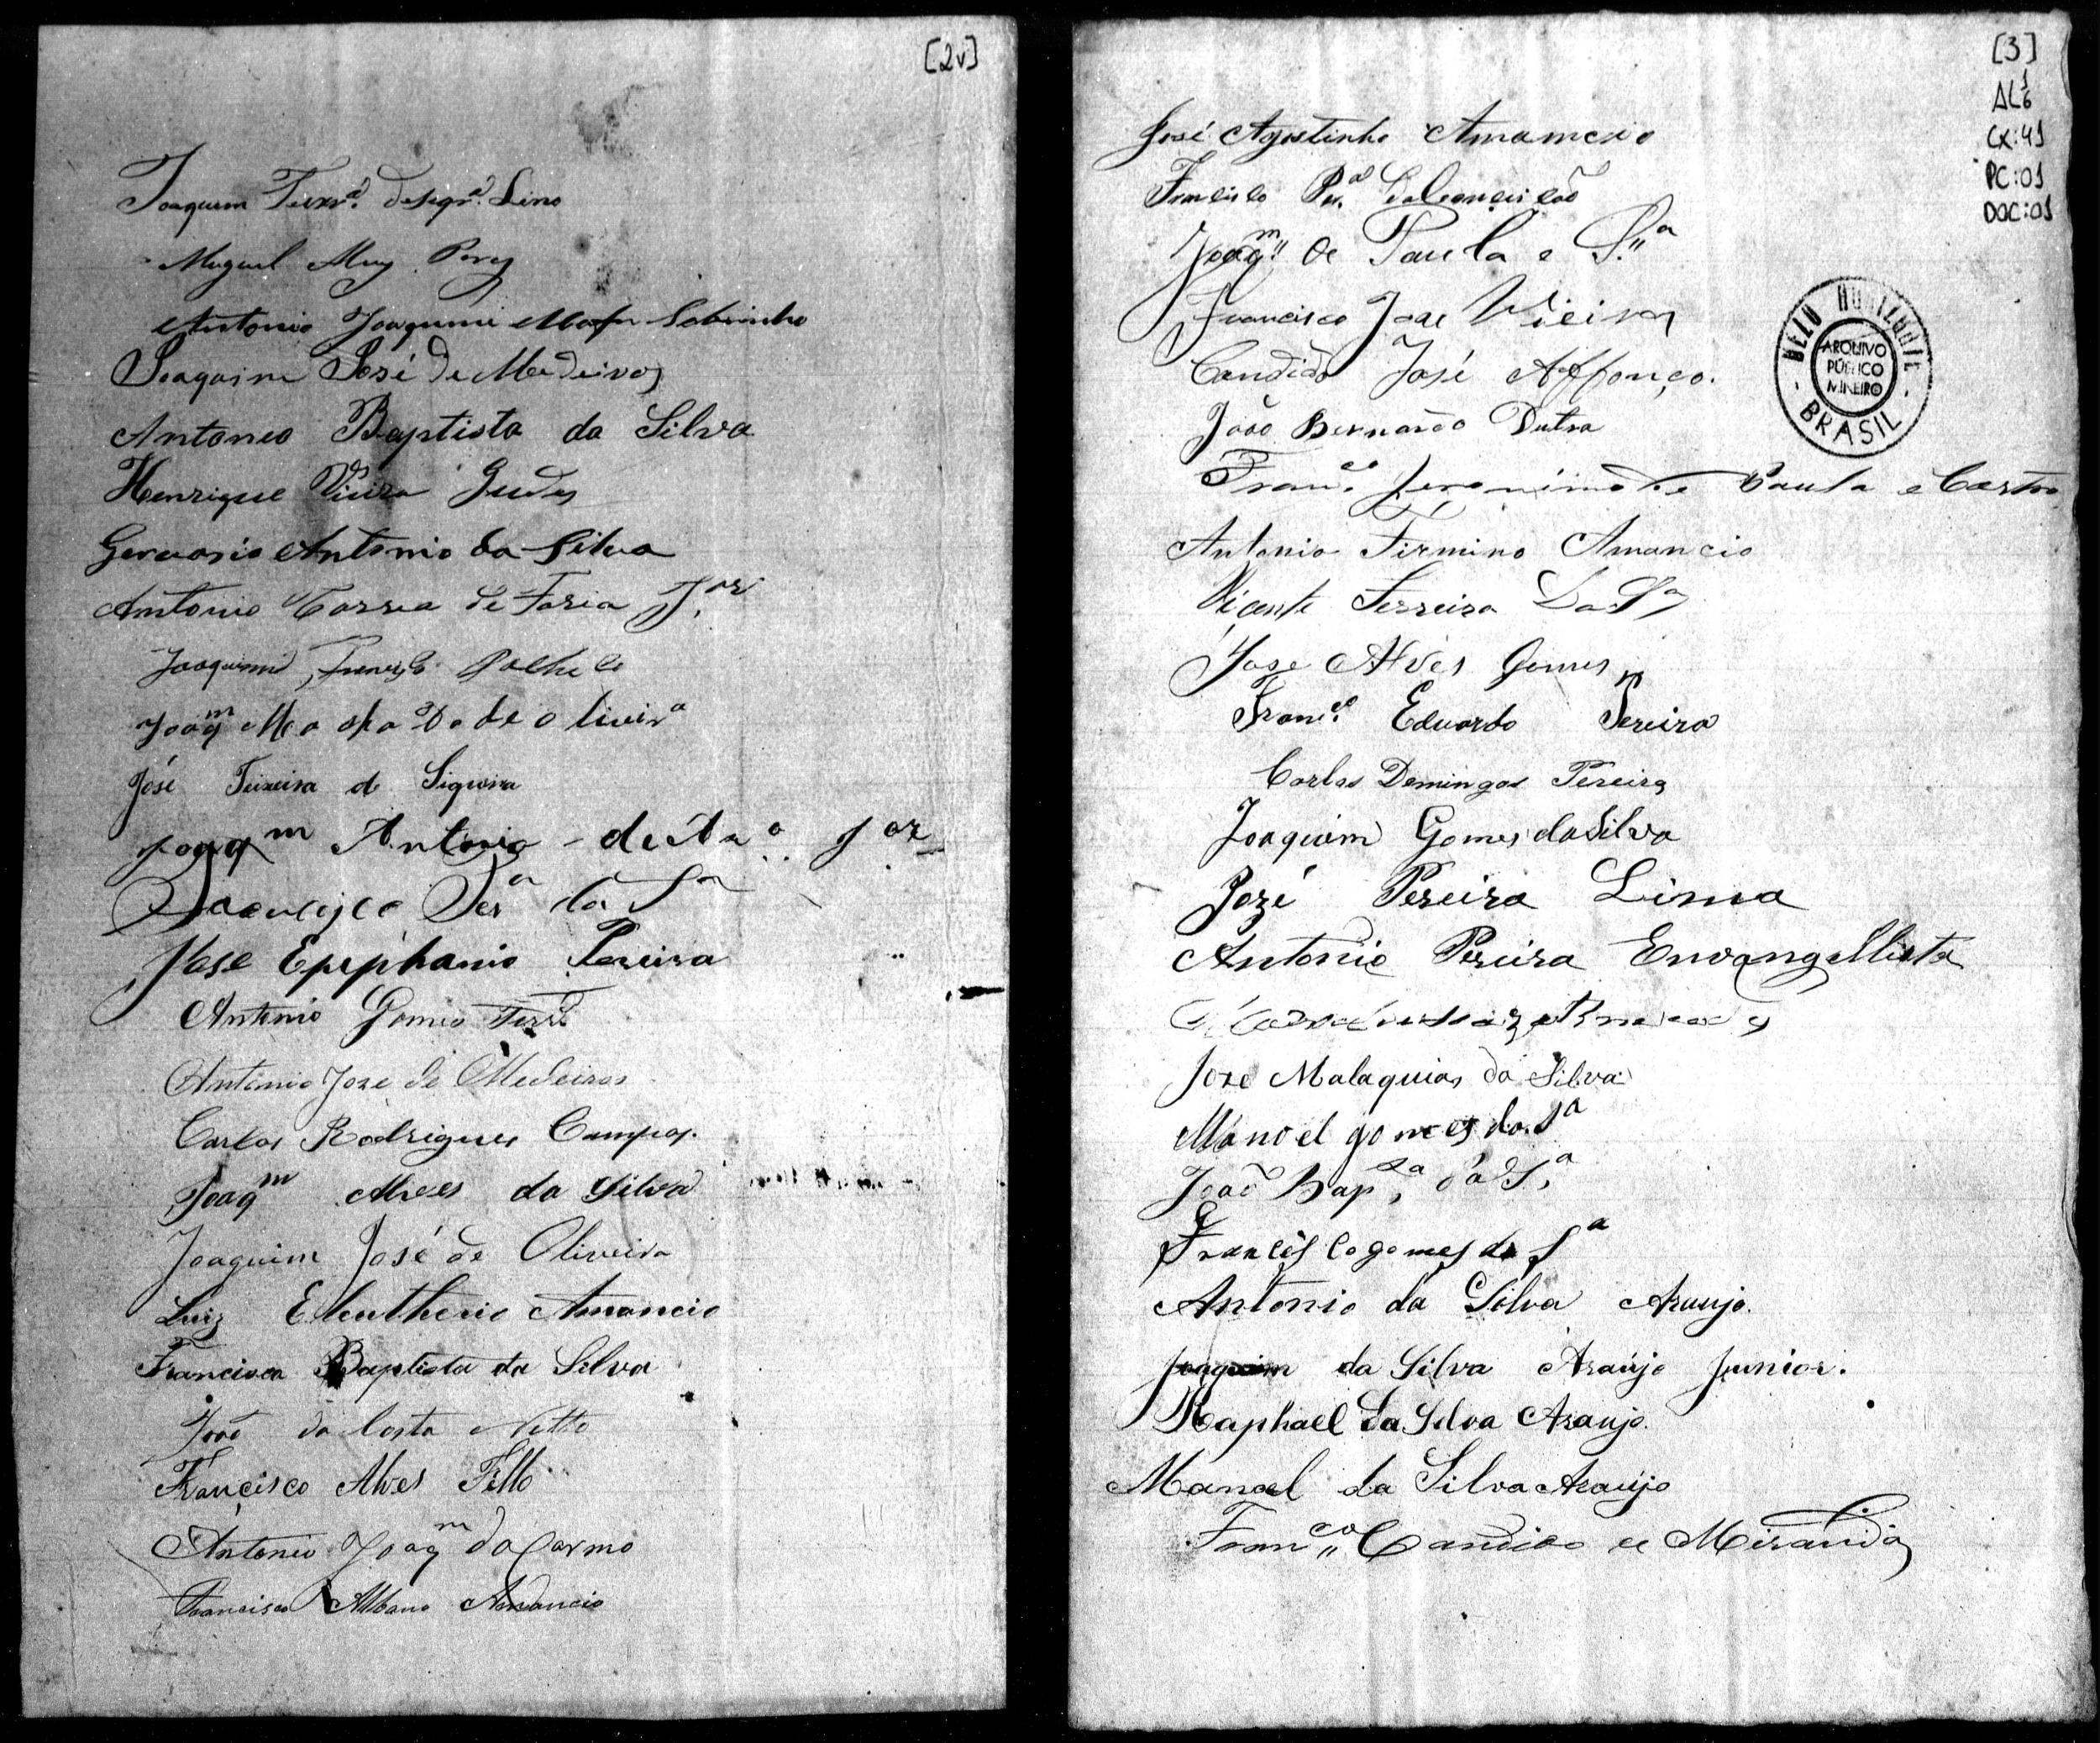 [2v]
Joaquim Teixrª. de Siqrª. Lino
Miguel
Antonio Joaquim Sobrinho
Joaquim José de Medeiros
Antoneo Baptista da Silva
Henrique Vieira Guedes
Gervasio Antonio da Silva
Antonio Correa de Faria J.or
Joaquim
Joaqm Machado de olivirª
José Teixeira de Siqueira
Joaqm Antonio de Jor
Francisco Ferª da Sª
José Epephanio Pereira
Antonio Gomes
Antonio Joze de Medeiros
Carlos Rodrigues Campos.
Joaqm Alves da Silva
Joaquim José de Oliveira
Luiz Eleutherio Amancio
Francisco Baptista da Silva
João da Costa Netto
Francisco Alves Filho
Antonio Joaqm do Carmo
Francisco Albano Amancio
[3]
AL1/6
CX:41
PC:01
DOC:01
José Agostinho Amancio
Francisco Perª da Conceicão
Joaqm de Paula e Sª
Francisco Jose Vieira
Candido José Affonço.
João Bernardo Dutra
Franco. Jeronimo de Paula e Castro
Antonio Firmino Amancio
Vicente Ferreira Da Sª
Jose Alves Gomes
Franco. Eduardo Pereira
Carlos Domingos Pereira
Joaquim Gomes da Silva
Jozé Pereira Lima
Antonio Pereira Envangellista
Joze Malaquias da Silva
Manoel gomes da Sª
João Bapta. da Sª
Francisco gomes da Sª
Antonio da Silva Araujo.
Joaquim da Silva Araújo Junior.
Raphael da Silva Araujo.
Manoel da Silva Araújo
Franco Candido de Miranda
BELO HORIZONTE
ARQUIVO
PÚBLICO
MINEIRO
- BRASIL -